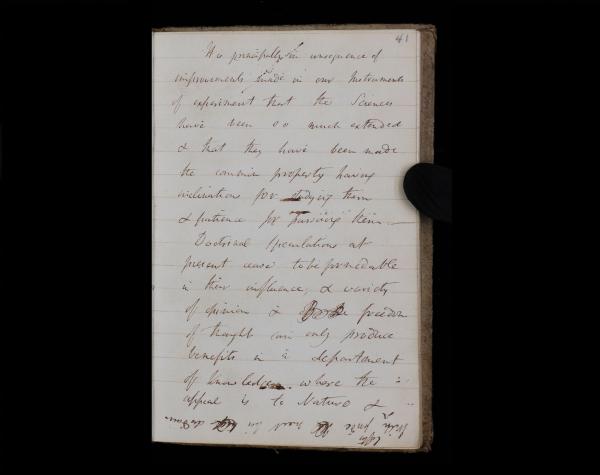 41
It is principally in consequence of
improvements made in our Instruments
of experiment that the Sciences
have been so much extended
& that they have been made
the common property having
inclination for studying them
& patience for pursuing
Doctrinal Speculations at
present cease to be formidable
in their influence, & variety
of opinion & freedom
of thought can only produce
benefits in a department
of knowledge where the
appeal is to Nature &